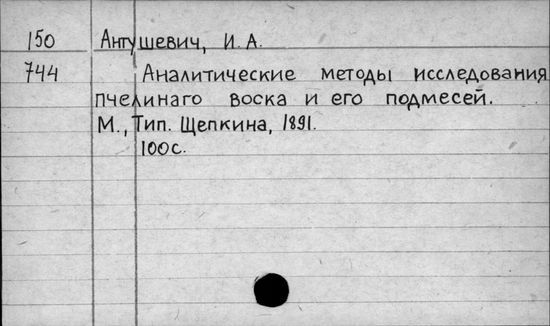 150 Антушевич, И. А.
744 Аналитические методы исследования
пчелинаго воска и его подмесей.
М., Тип. Щепкина, 1891.
100с.